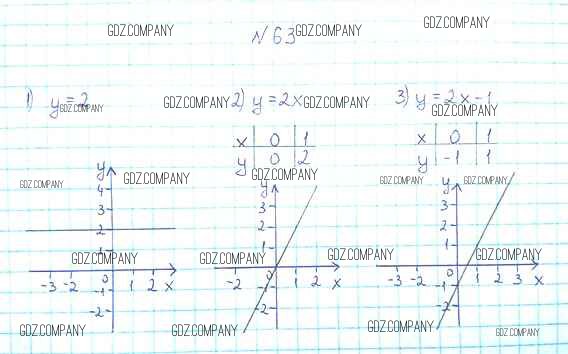 GDZ.COMPANY
№ 63 GDZ.COMPANY
GDZ.COMPANY
1) y = 2
GDZ.COMPANY
GDZ.COMPANY 2) y = 2x GDZ.COMPANY
3) y = 2x - 1
GDZ.COMPANY
x 0 1
y 0 2
x 0 1
y -1 1
GDZ.COMPANY
GDZ.COMPANY
GDZ.COMPANY
GDZ.COMPANY
GDZ.COMPANY
y
4
3
2
1
0
-3 -2 1 2 x
-1
-2
y
3
2
1
0
-2 1 2 x
-1
-2
y
3
2
1
0
-3 -2 1 2 3 x
-1
-2
GDZ.COMPANY
GDZ.COMPANY
GDZ.COMPANY
GDZ.COMPANY
GDZ.COMPANY
GDZ.COMPANY
GDZ.COMPANY
GDZ.COMPANY